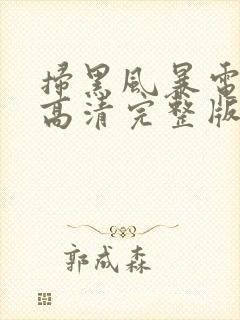 掃黑風暴電
高清完整版
郭成森